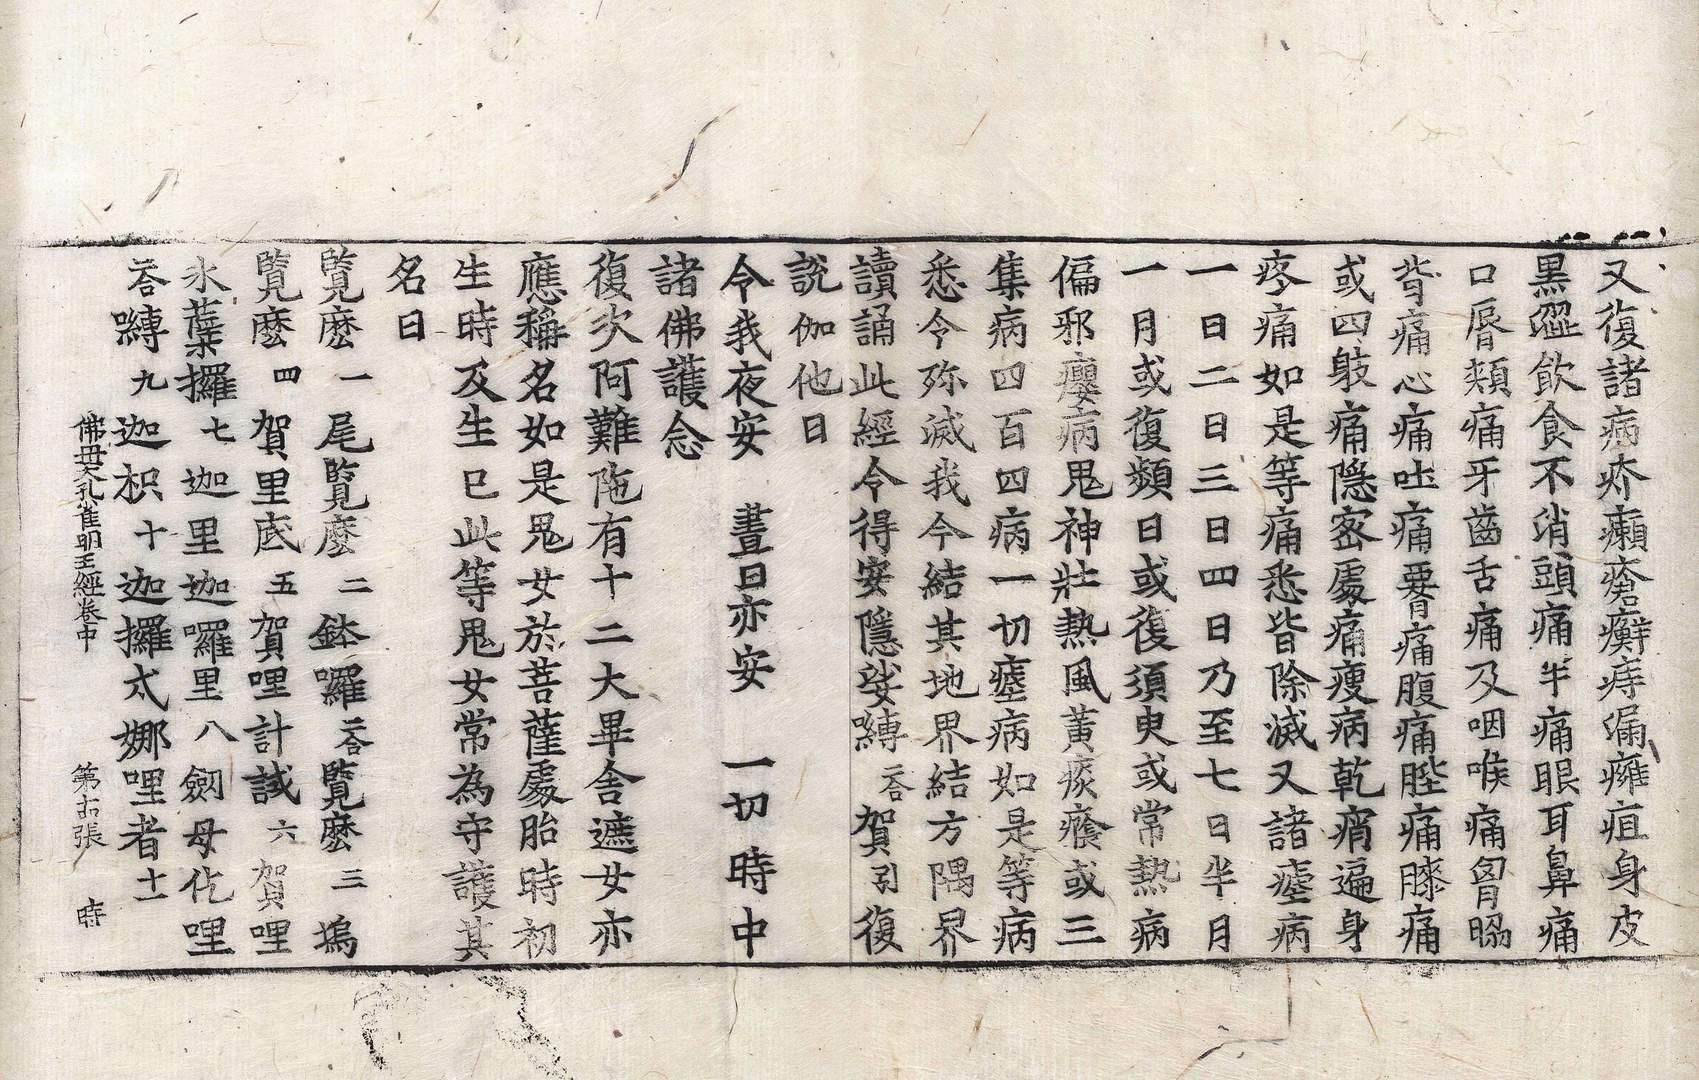 又復諸病疥癩瘡癬痔漏癰疽身皮
黑澀飲食不消頭痛半痛眼耳鼻痛
口脣頰痛牙齒舌痛及咽喉痛胷脇
背痛心痛吐痛𦝫痛腹痛䏶痛膝痛
或四躰痛隱密處痛瘦病乾痟遍身
疼痛如是等痛悉皆除滅又諸瘧病
一日二日三日四日乃至七日半月
一月或復頻日或復須臾或常熱病
偏邪癭病鬼神壯熱風黃痰癊或三
集病四百四病一切瘧病如是等病
悉令殄滅我今結其地界結方隅界
讀誦此經令得安隱娑嚩二合賀引復
說伽他曰
令我夜安　晝日亦安　一切時中
諸佛護念
復次阿難陁有十二大畢舍遮女亦
應稱名如是鬼女於菩薩處胎時初
生時及生已此等鬼女常為守護其
名曰
覽麼一尾覽麼二鉢囉二合覽麼三塢
覽麼四賀里底五賀哩計試六賀哩
氷蘖攞七迦里迦囉里八劒母仡哩
二合嚩九迦枳十迦攞戍娜哩者十一
佛母大孔雀明王經卷中　第十四張　時